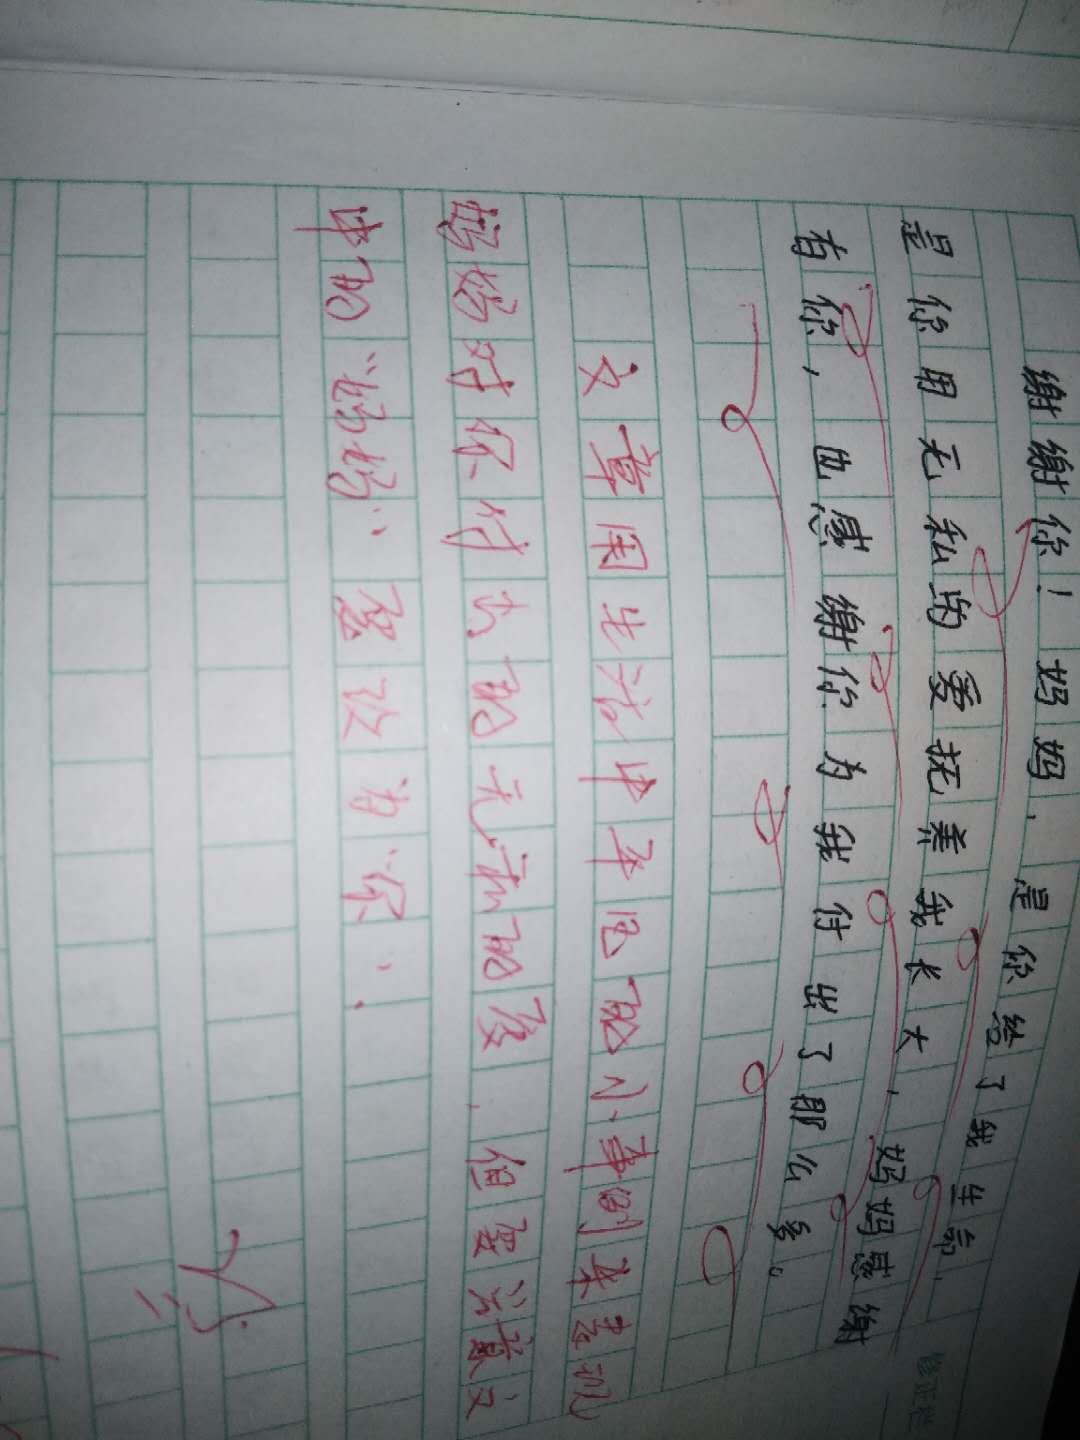 谢谢你！妈妈，是你给了我生命，
是你用无私的爱抚养我长大，妈妈感谢
有你，也感谢你为我付出了那么多。
文章用生活中平凡的小事例来表现
妈妈对你付出的无私的爱，但要注意文
中的“妈妈”要改为“你”。
修正栏